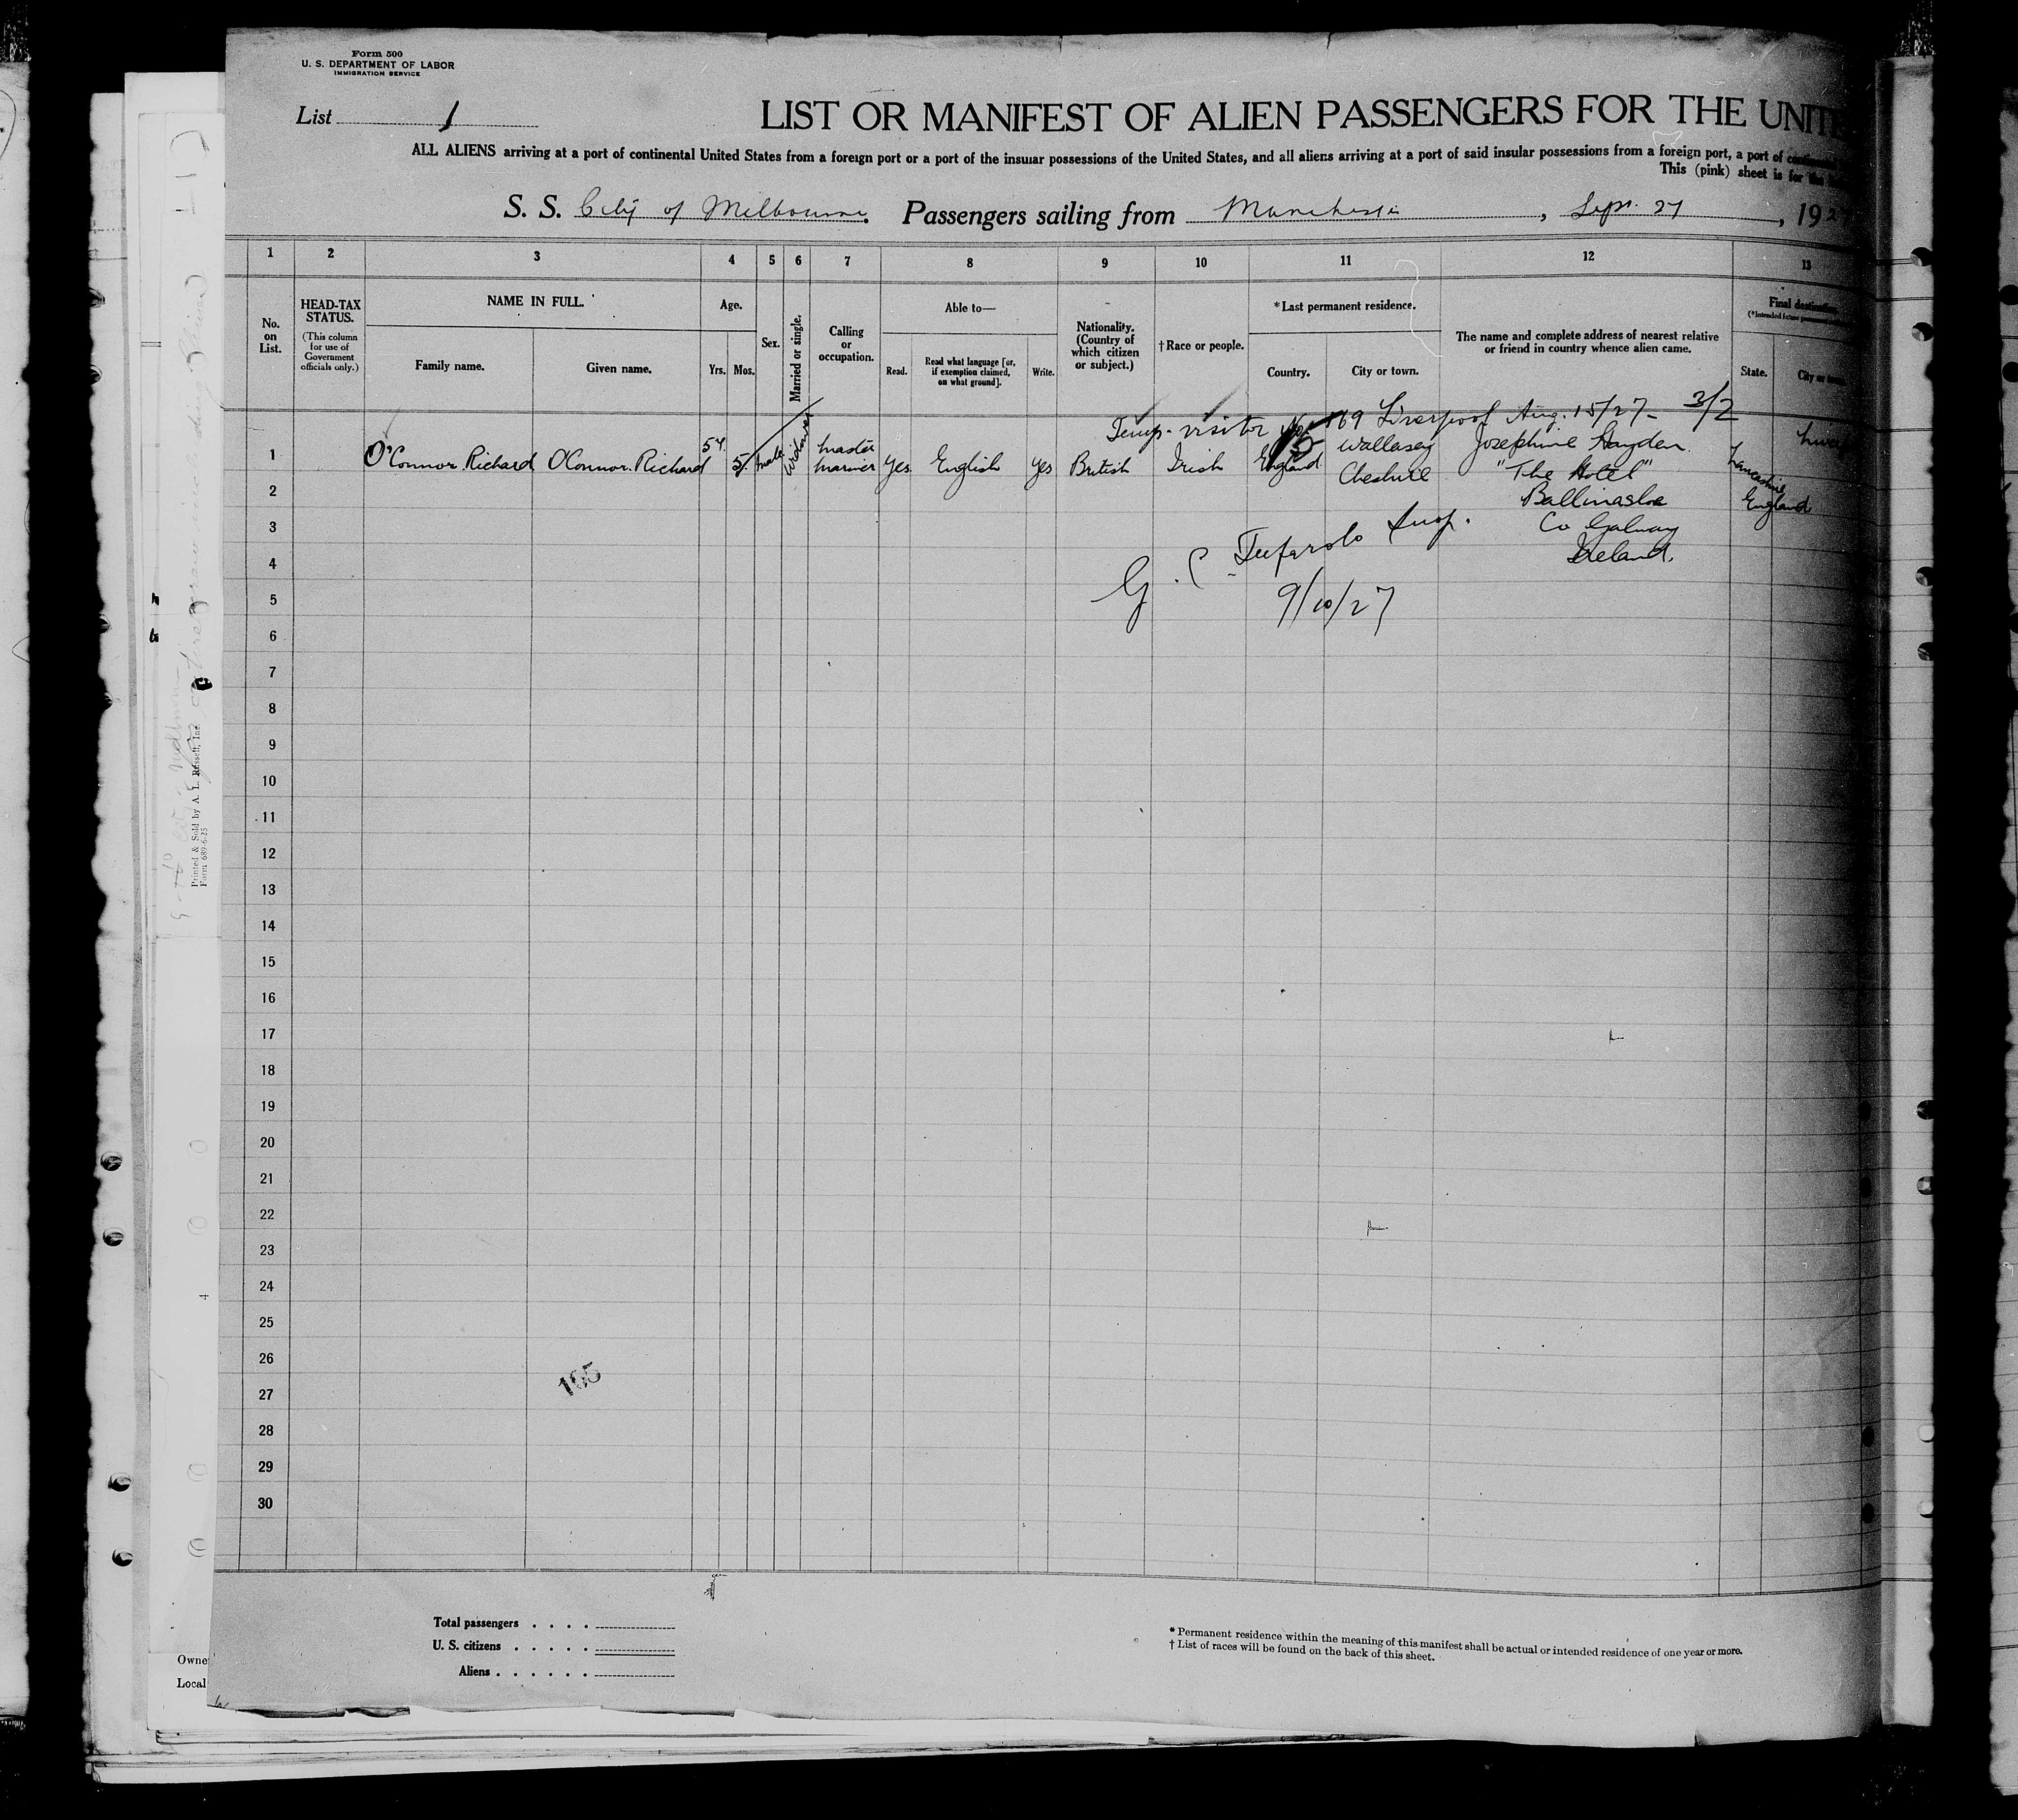 Form 500
U. S. DEPARTMENT OF LABOR
IMMIGRATION SERVICE
List 1
LIST OR MANIFEST OF ALIEN PASSENGERS FOR THE UNITE
ALL ALIENS arriving at a port of continental United States from a foreign port or a port of the insular possessions of the United States, and all aliens arriving at a port of said insular possessions from a foreign port, a port of
This (pink) sheet is for the
S. S. City of Melbourne. Passengers sailing from Manchester, Sept. 27, 1927
1 2 3 4 5 6 7 8 9 10 11 12 13
No. on List.
HEAD-TAX STATUS.
(This column for use of Government officials only.)
NAME IN FULL.
Family name. Given name.
Age.
Yrs. Mos.
Sex.
Married or single.
Calling or occupation.
Able to—
Read. Read what language [or, if exemption claimed, on what ground]. Write.
Nationality. (Country of which citizen or subject.)
†Race or people.
*Last permanent residence.
Country. City or town.
The name and complete address of nearest relative or friend in country whence alien came.
Final destination.
State. City or town.
Temp. visitor No. 169 Liverpool Aug. 15/27- 3/2
1 O'Connor. Richard O'Connor. Richard 54 5 male widower master mariner yes English yes British Irish England Wallasey Cheshire Josephine Hayden
"The Hotel"
Ballinasloe
Co Galway
Ireland.
Lancashire
England
G. C. Insp.
9/10/27
2
3
4
5
6
7
8
9
10
11
12
13
14
15
16
17
18
19
20
21
22
23
24
25
26
27
28
29
30
165
Total passengers
U. S. citizens
Aliens
* Permanent residence within the meaning of this manifest shall be actual or intended residence of one year or more.
† List of races will be found on the back of this sheet.
Printed & Sold by A. L. Russell, Inc
Form 689-6-25
4
Owne
Local